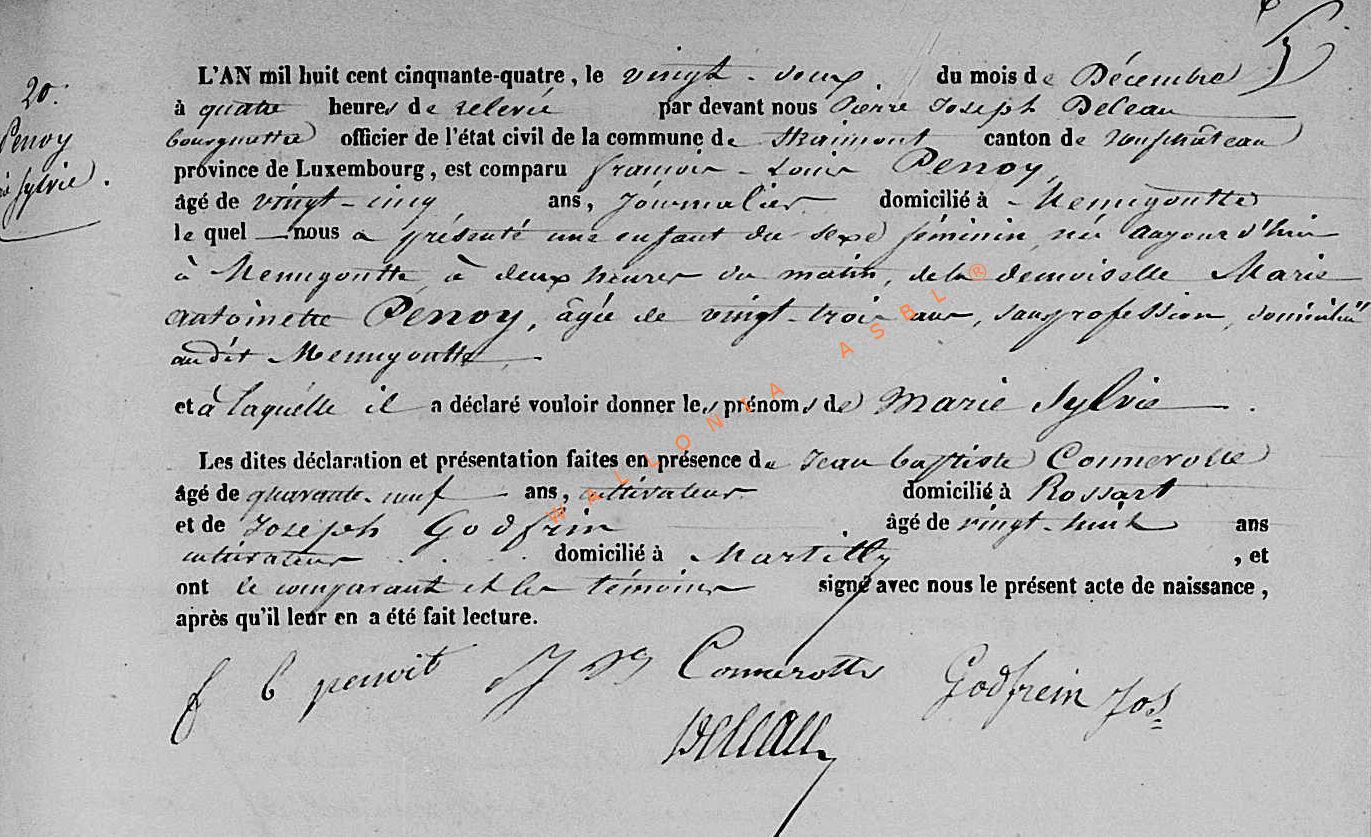 20.
Penoy
Sylvie.
L'AN mil huit cent cinquante-quatre, le vingt-deux du mois de Décembre
à quatre heures de relevée par devant nous Pierre Joseph Deleau
bourgmettre officier de l'état civil de la commune de Straimont canton de neufchâteau
province de Luxembourg, est comparu françois-Louis Penoy,
âgé de vingt-cinq ans, Journalier domicilié à Menugoutte
lequel nous a présenté une enfant du sexe féminin, née aujourd'hui
à Menugoutte, à deux heures du matin, de la demoiselle Marie
antoinette Penoy, âgée de vingt-trois ans, sans profession, domiciliée
audit Menugoutte.
et à laquelle il a déclaré vouloir donner les prénoms de Marie Sylvie.
Les dites déclaration et présentation faites en présence de Jean baptiste Connerotte
âgé de quarante-neuf ans, cultivateur domicilié à Rossart
et de Joseph Godfrin, âgé de vingt-huit ans
cultivateur domicilié à Martilly, et
ont le comparant et les témoins signé avec nous le présent acte de naissance,
après qu'il leur en a été fait lecture.
penoit Connerotte Godfrein Jos
Deleau
WALLONIA ASBL ®